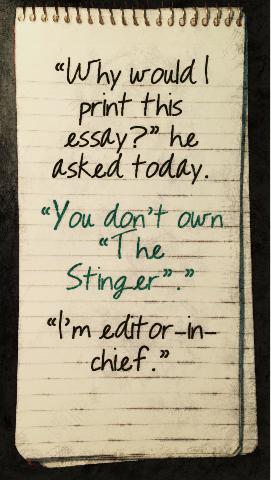 “Why would I
print this
essay?” he
asked today.
“You don't own
“The
Stinger”.”
“I'm editor-in-
chief.”